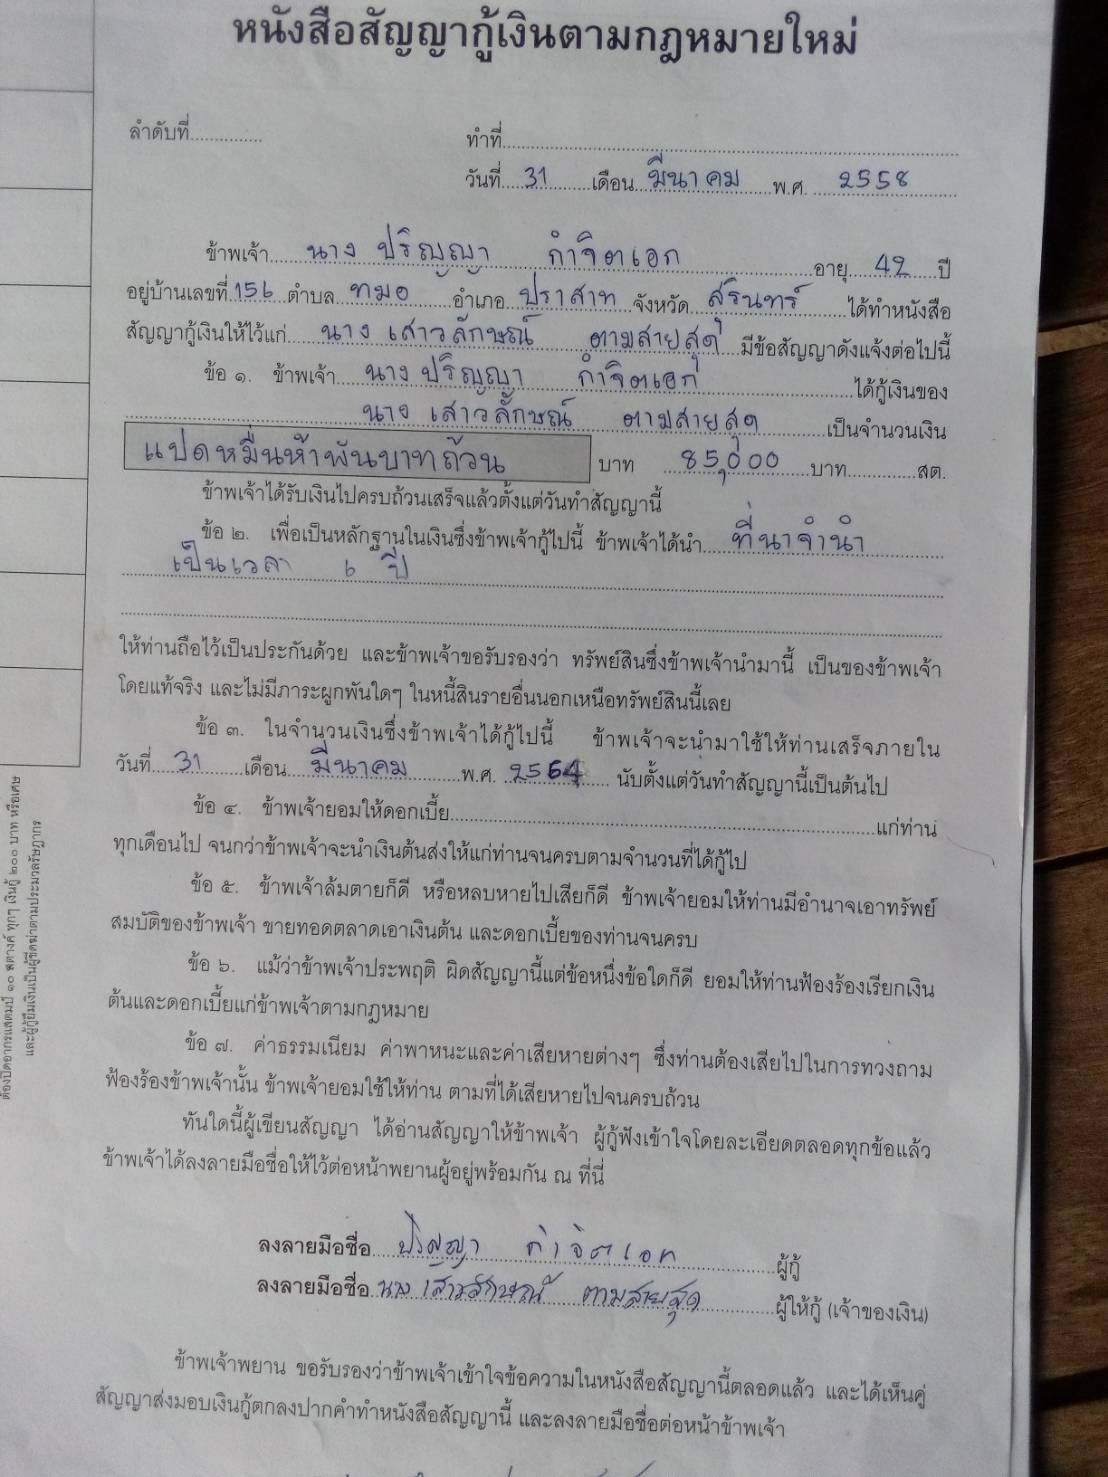 หนังสือสัญญากู้เงินตามกฎหมายใหม่
ลำดับที่............. ทำที่
วันที่ 31 เดือน มีนาคม พ.ศ. 2558
ข้าพเจ้า นาง ปริญญา กำจิตเอก อายุ 42 ปี
อยู่บ้านเลขที่ 156 ตำบล ทมอ อำเภอ ปราสาท จังหวัด สุรินทร์ ได้ทำหนังสือ
สัญญากู้เงินให้ไว้แก่ นาง เสาวลักษณ์ ตามสายสุด มีข้อสัญญาดังแจ้งต่อไปนี้
ข้อ ๑. ข้าพเจ้า นาง ปริญญา กำจิตเอก ได้กู้เงินของ
นาง เสาวลักษณ์ ตามสายสุด เป็นจำนวนเงิน
แปดหมื่นห้าพันบาทถ้วน บาท 85,000 บาท สต.
ข้าพเจ้าได้รับเงินไปครบถ้วนเสร็จแล้วตั้งแต่วันทำสัญญานี้
ข้อ ๒. เพื่อเป็นหลักฐานในเงินซึ่งข้าพเจ้ากู้ไปนี้ ข้าพเจ้าได้นำ ที่นาจำนำ
เป็นเวลา ๖ ปี
ให้ท่านถือไว้เป็นประกันด้วย และข้าพเจ้าขอรับรองว่า ทรัพย์สินซึ่งข้าพเจ้านำมานี้ เป็นของข้าพเจ้า
โดยแท้จริง และไม่มีภาระผูกพันใดๆ ในหนี้สินรายอื่นนอกเหนือทรัพย์สินนี้เลย
ข้อ ๓. ในจำนวนเงินซึ่งข้าพเจ้าได้กู้ไปนี้ ข้าพเจ้าจะนำมาใช้ให้ท่านเสร็จภายใน
วันที่ 31 เดือน มีนาคม พ.ศ. 2564 นับตั้งแต่วันทำสัญญานี้เป็นต้นไป
ข้อ ๔. ข้าพเจ้ายอมให้ดอกเบี้ย แก่ท่าน
ทุกเดือนไป จนกว่าข้าพเจ้าจะนำเงินต้นส่งให้แก่ท่านจนครบตามจำนวนที่ได้กู้ไป
ข้อ ๕. ข้าพเจ้าล้มตายก็ดี หรือหลบหายไปเสียก็ดี ข้าพเจ้ายอมให้ท่านมีอำนาจเอาทรัพย์
สมบัติของข้าพเจ้า ขายทอดตลาดเอาเงินต้น และดอกเบี้ยของท่านจนครบ
ข้อ ๖. แม้ว่าข้าพเจ้าประพฤติ ผิดสัญญานี้แต่ข้อหนึ่งข้อใดก็ดี ยอมให้ท่านฟ้องร้องเรียกเงิน
ต้นและดอกเบี้ยแก่ข้าพเจ้าตามกฎหมาย
ข้อ ๗. ค่าธรรมเนียม ค่าพาหนะและค่าเสียหายต่างๆ ซึ่งท่านต้องเสียไปในการทวงถาม
ฟ้องร้องข้าพเจ้านั้น ข้าพเจ้ายอมใช้ให้ท่าน ตามที่ได้เสียหายไปจนครบถ้วน
ทันใดนี้ผู้เขียนสัญญา ได้อ่านสัญญาให้ข้าพเจ้า ผู้กู้ฟังเข้าใจโดยละเอียดตลอดทุกข้อแล้ว
ข้าพเจ้าได้ลงลายมือชื่อให้ไว้ต่อหน้าพยานผู้อยู่พร้อมกัน ณ ที่นี่
ลงลายมือชื่อ ปริญญา กำจิตเอก ผู้กู้
ลงลายมือชื่อ นาง เสาวลักษณ์ ตามสายสุด ผู้ให้กู้ (เจ้าของเงิน)
ข้าพเจ้าพยาน ขอรับรองว่าข้าพเจ้าเข้าใจข้อความในหนังสือสัญญานี้ตลอดแล้ว และได้เห็นคู่
สัญญาส่งมอบเงินกู้ตกลงปากคำทำหนังสือสัญญานี้ และลงลายมือชื่อต่อหน้าข้าพเจ้า
ต้องปิดอากรแสตมป์ ๑๐ สตางค์ ทุกๆ เงินกู้ ๒๐๐ บาท หรือเศษ
และผู้กู้ยืมเงินเป็นผู้ขีดฆ่าตามประมวลรัษฎากร